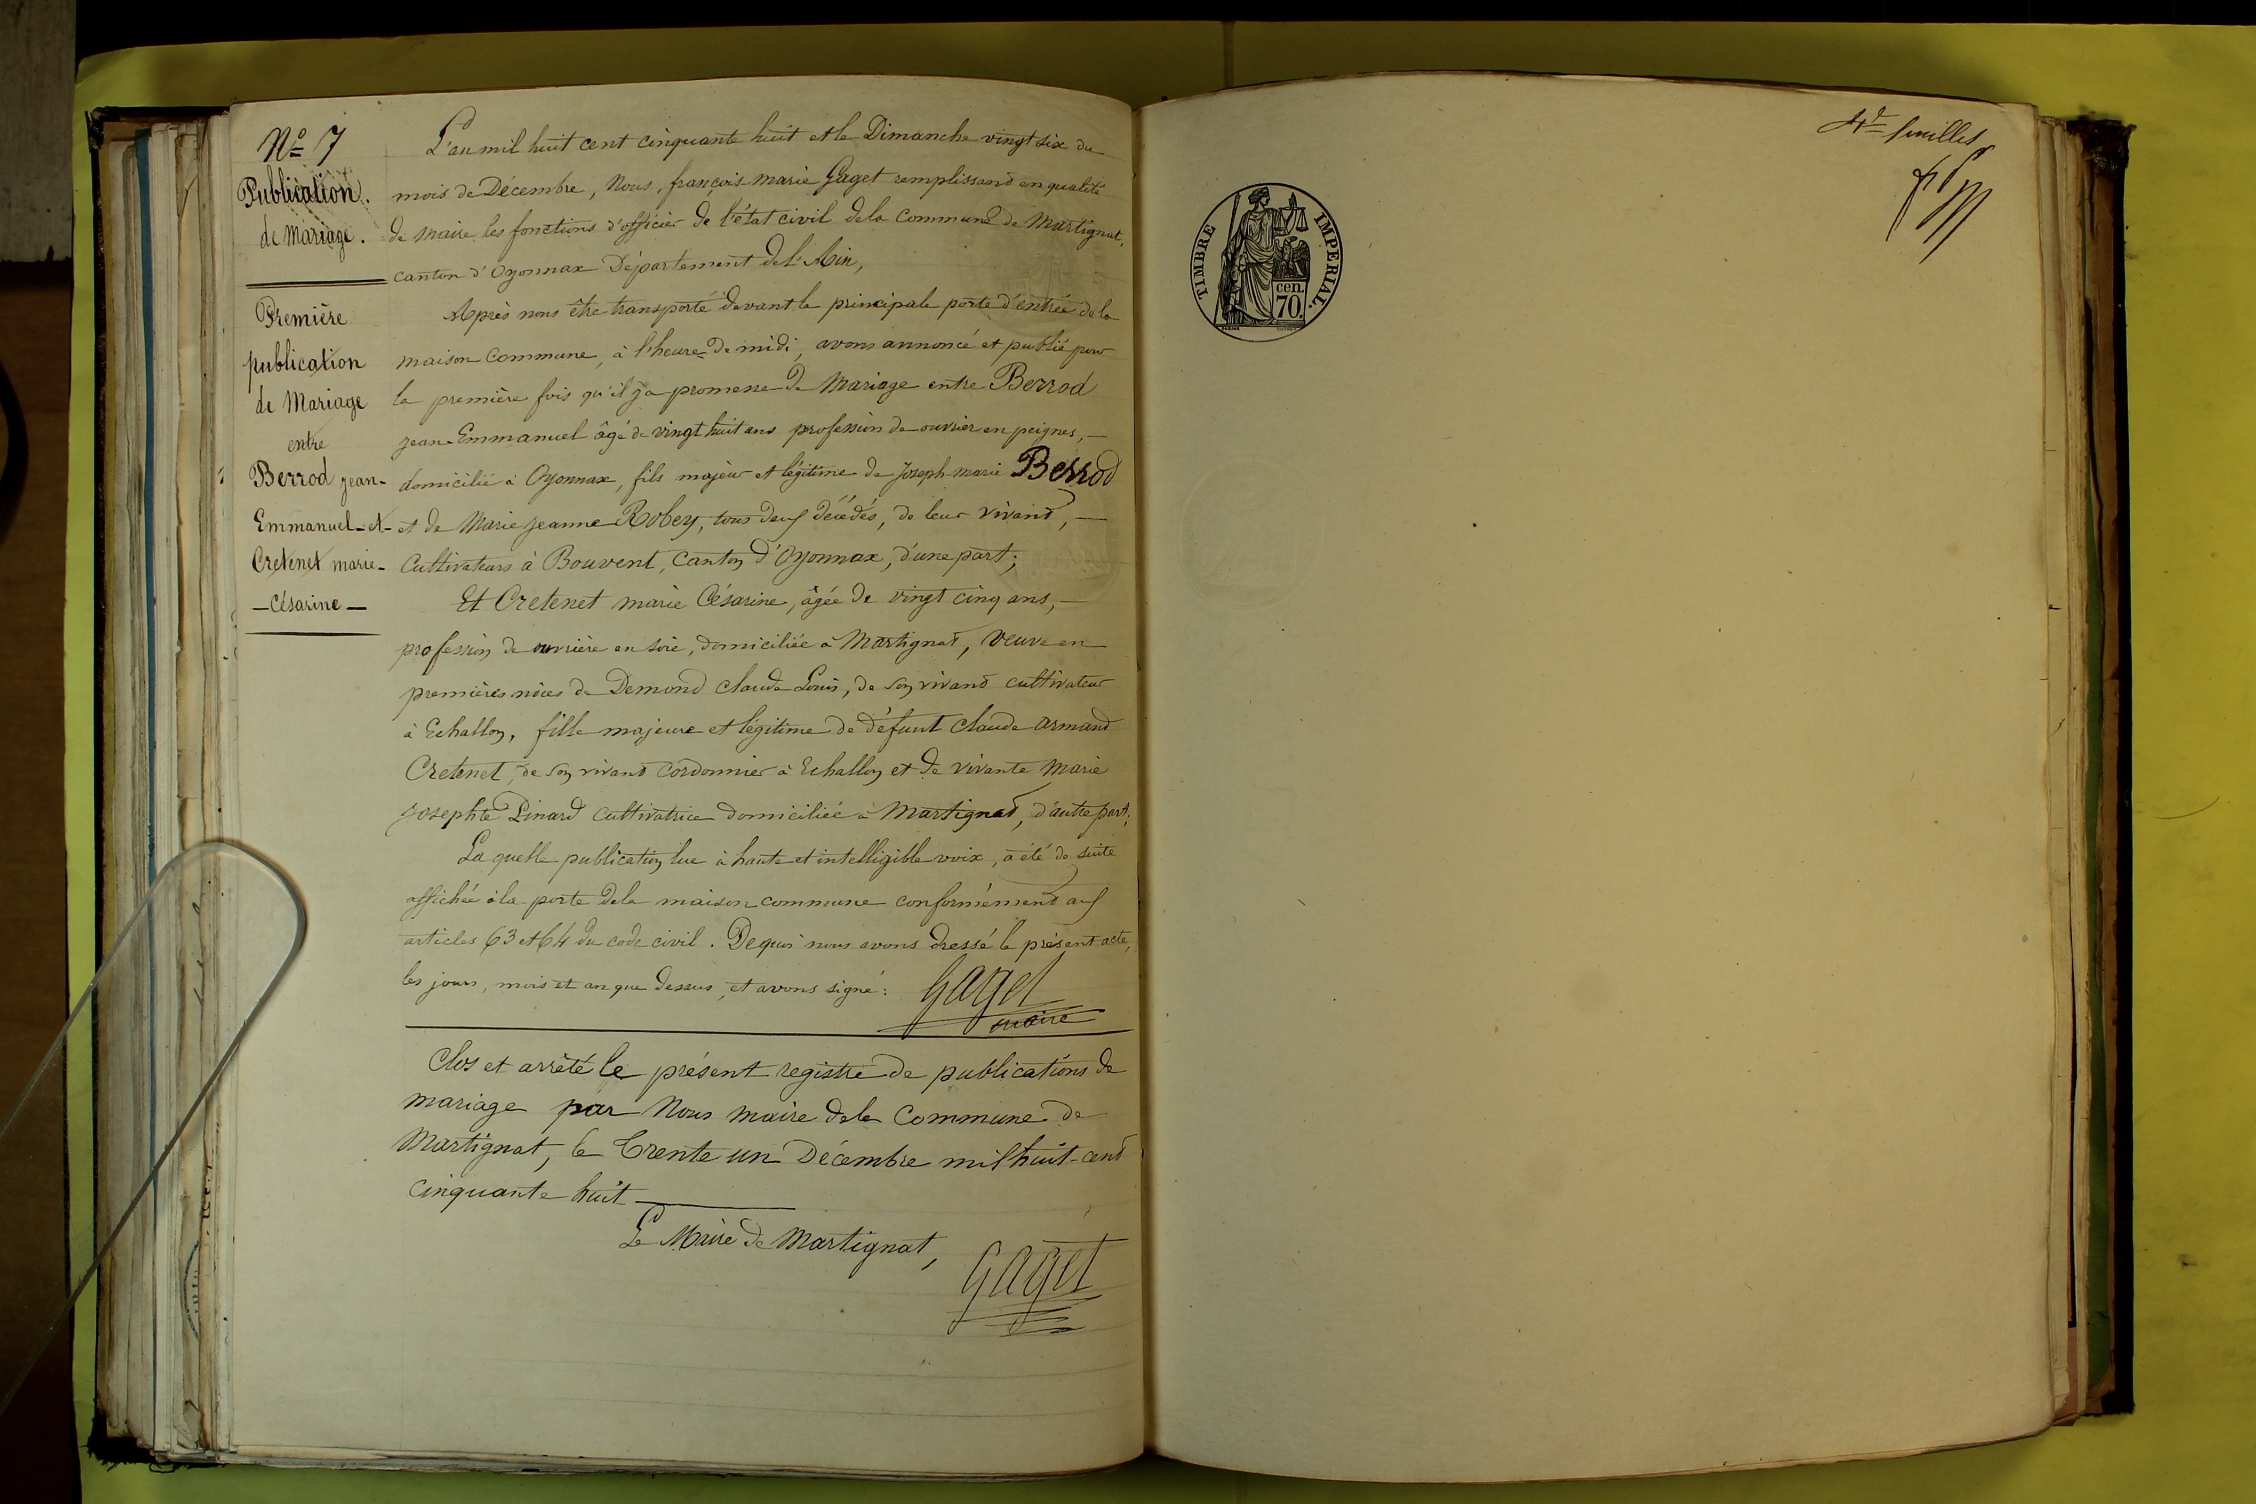 Nº 7
Publication.
de Mariage.
Première
publication
de Mariage
entre
Berrod jean-
Emmanuel-et-
Cretenet marie-
-Césarine-
L'an mil huit cent cinquante huit et le Dimanche vingt six du
mois de Décembre, Nous, françois marie Gaget remplissant en qualité
de maire les fonctions d'officier de l'état civil de la Commune de Martignat,
canton d'Oyonnax Département de l'Ain,
Après nous être transporté devant la principale porte d'entrée de la
maison Commune, à l'heure de midi, avons annoncé et publié pour
la première fois qu'il y a promesse de Mariage entre Berrod
jean-Emmanuel âgé de vingt huit ans profession de ouvrier en peignes,-
domicilié à Oyonnax, fils majeur et légitime de Joseph-marie Berrod
et de Marie jeanne Robey, tous deux décédés, de leur vivant,-
Cultivateurs à Bouvent, Canton d'Oyonnax, d'une part;
Et Cretenet marie Césarine, âgée de vingt cinq ans,-
profession de ouvrière en soie, domiciliée à Martignat, Veuve en
premières nôces de Demond Claude Louis, de son vivant cultivateur
à Echallon, fille majeure et légitime de défunt Claude armand
Cretenet, de son vivant Cordonnier à Echallon et de vivante Marie
josephte Pinard Cultivatrice domiciliée à Martignat, d'autre part;
La quelle publication lue à haute et intelligible voix, a été de suite
affichée à la porte de la maison commune conformément aux
articles 63 et 64 du code civil. De quoi nous avons dressé le présent acte,
les jours, mois et an que dessus, et avons signé: Gaget
maire
Clos et arrêté le présent registre de publications de
mariage par Nous maire de la Commune de
Martignat, le Trente un Décembre mil huit-cent
cinquante huit
Le Maire de Martignat,
Gaget
4e feuillet
TIMBRE IMPERIAL.
cen.
70.